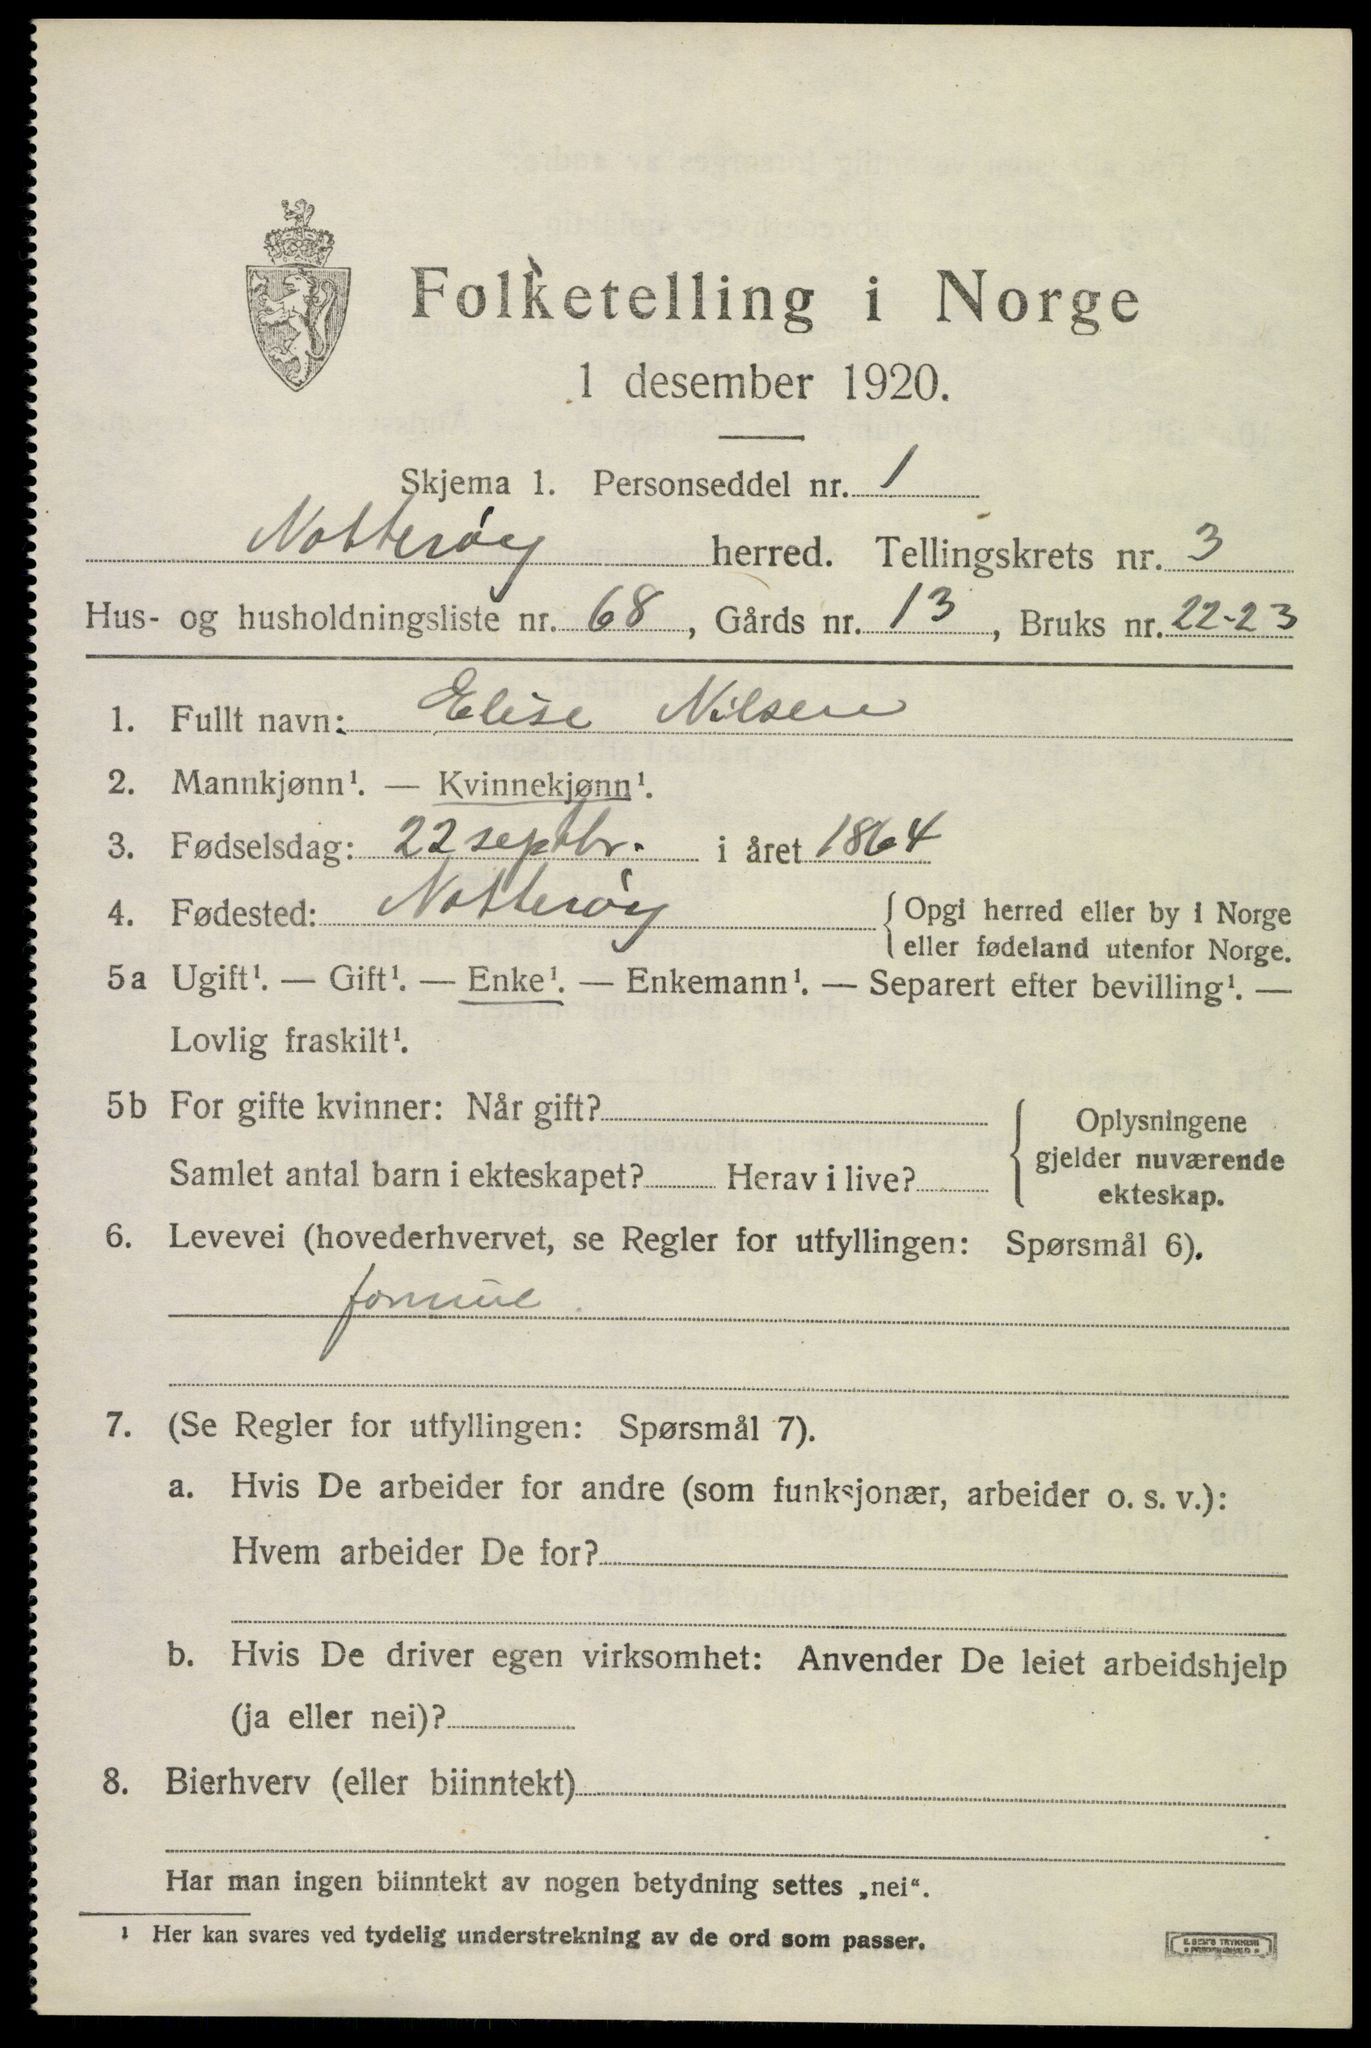 Folketelling i Norge
1 desember 1920.
Skjema 1. Personseddel nr. 1
Nøtterøy herred. Tellingskrets nr. 3
Hus- og husholdningsliste nr. 68, Gårds nr. 13, Bruks nr. 22-23
1. Fullt navn: Elise Nilsen
2. Mannkjønn¹. — Kvinnekjønn¹.
3. Fødselsdag: 22 septbr. i året 1864
4. Fødested: Nøtterøy { Opgi herred eller by i Norge
eller fødeland utenfor Norge.
5a Ugift¹. — Gift¹. — Enke¹. — Enkemann¹. — Separert efter bevilling¹. —
Lovlig fraskilt¹.
5b For gifte kvinner: Når gift?
Samlet antal barn i ekteskapet? Herav i live?
{ Oplysningene
gjelder nuværende
ekteskap.
6. Levevei (hovederhvervet, se Regler for utfyllingen: Spørsmål 6).
formue
7. (Se Regler for utfyllingen: Spørsmål 7).
a. Hvis De arbeider for andre (som funksjonær, arbeider o. s. v.):
Hvem arbeider De for?
b. Hvis De driver egen virksomhet: Anvender De leiet arbeidshjelp
(ja eller nei)?
8. Bierhverv (eller biinntekt)
Har man ingen biinntekt av nogen betydning settes „nei“.
¹ Her kan svares ved tydelig understrekning av de ord som passer.